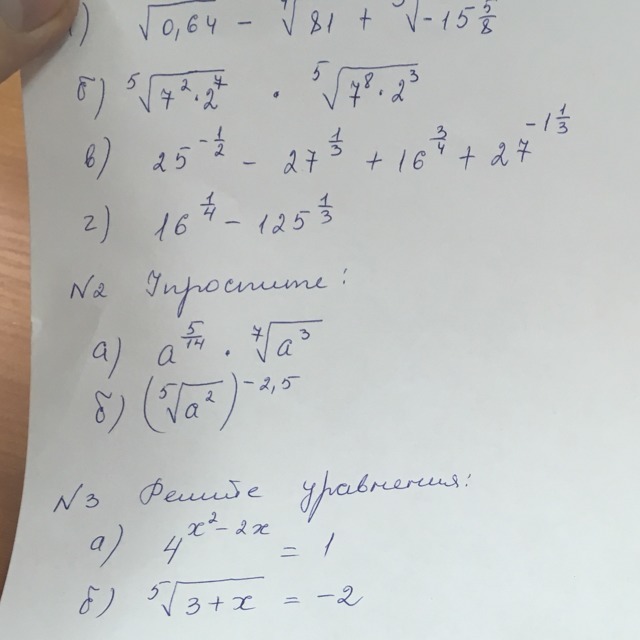 √0,64 − ∜81 + ∛−15 5/8
б) ⁵√7² · 2⁷ · ⁵√7⁸ · 2³
в) 25^(−1/2) − 27^(1/3) + 16^(3/4) + 27^(−1 1/3)
г) 16^(1/4) − 125^(1/3)
№2 Упростите:
а) a^(5/14) · ⁷√a³
б) (⁵√a²)^(−2,5)
№3 Решите уравнения:
а) 4^(x²−2x) = 1
б) ⁵√3+x = −2